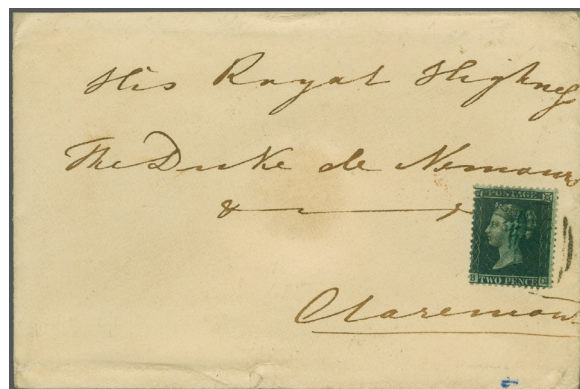 His Royal Highness
The Duke de Nemours
& ——
POSTAGE
TWO PENCE
Claremont